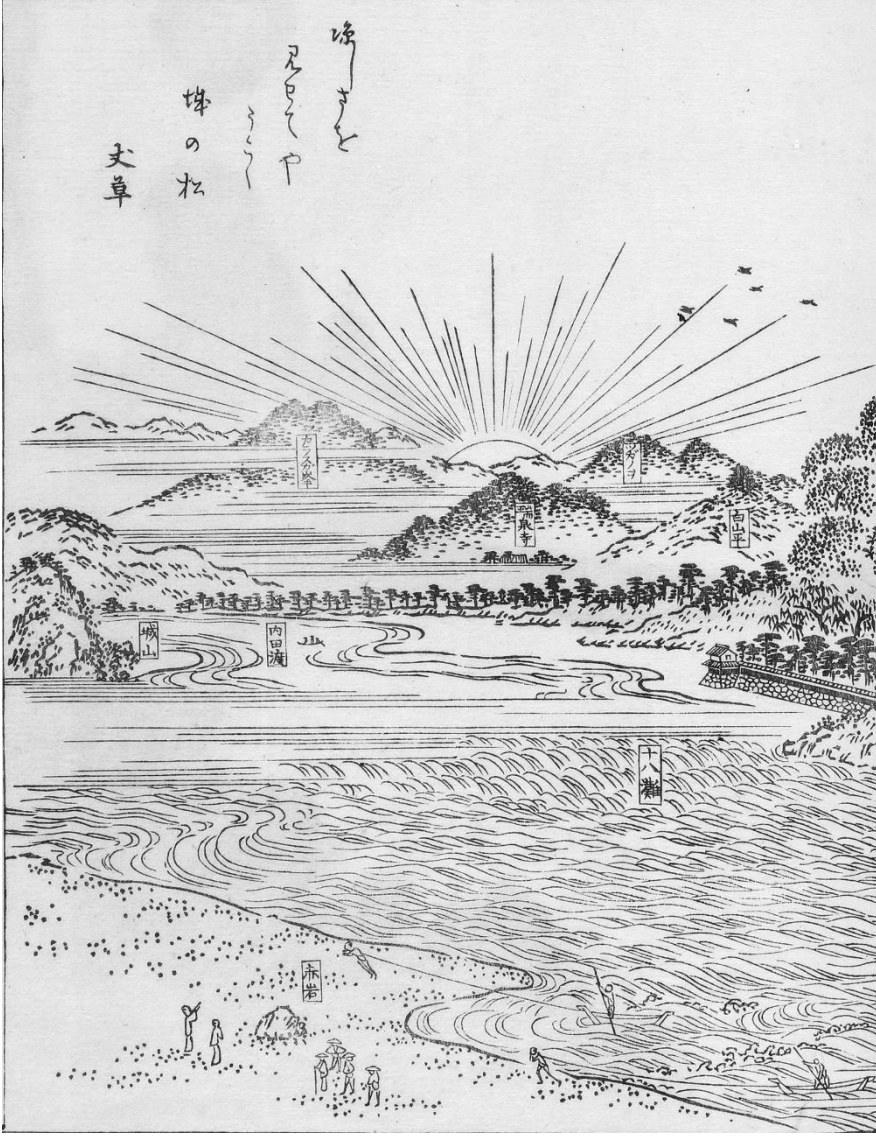 涼しさを
見せてや
うこく
城の松
丈草
瑞泉寺
白山平
城山
内田渡
十八灘
赤岩